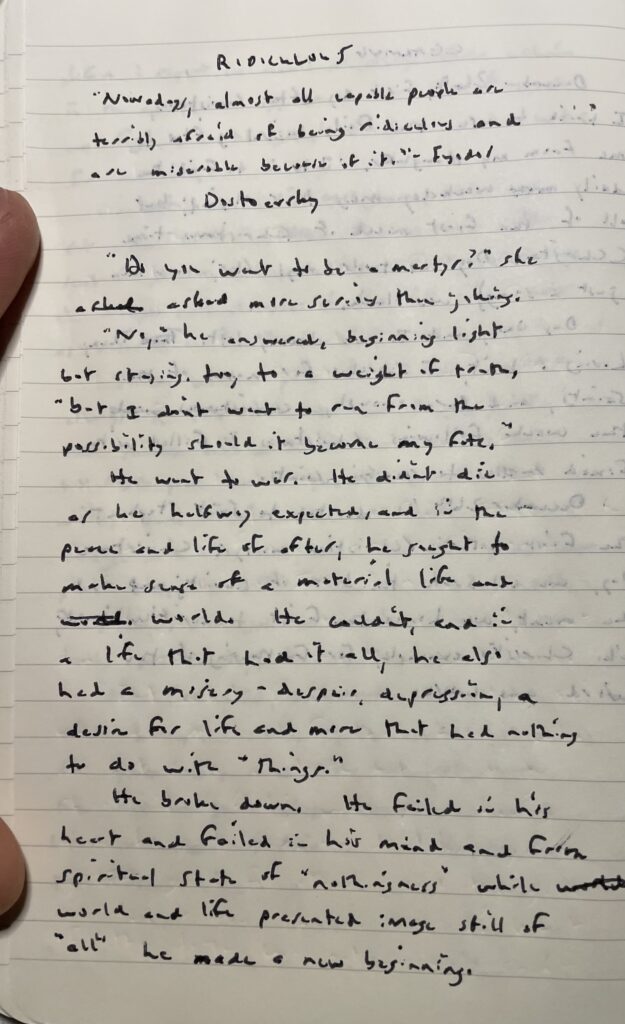 RIDICULOUS
"Nowadays, almost all capable people are
terribly afraid of being ridiculous and
are miserable because of it." - Fyodor
Dostoevsky
"Do you want to be a martyr?" she
asked asked more serious than joking.
"No," he answered, beginning light
but staying true to a weight of truth,
"but I don't want to run from the
possibility should it become my fate."
He went to war. He didn't die
as he halfway expected, and in the
peace and life of after, he sought to
make sense of a material life and
world. world. He couldn't, and in
a life that had it all, he also
had a misery - despair, depression, a
desire for life and more that had nothing
to do with "things."
He broke down. He failed in his
heart and failed in his mind and from
spiritual state of "nothingness" while world
world and life presented image still of
"all" he made a new beginning.